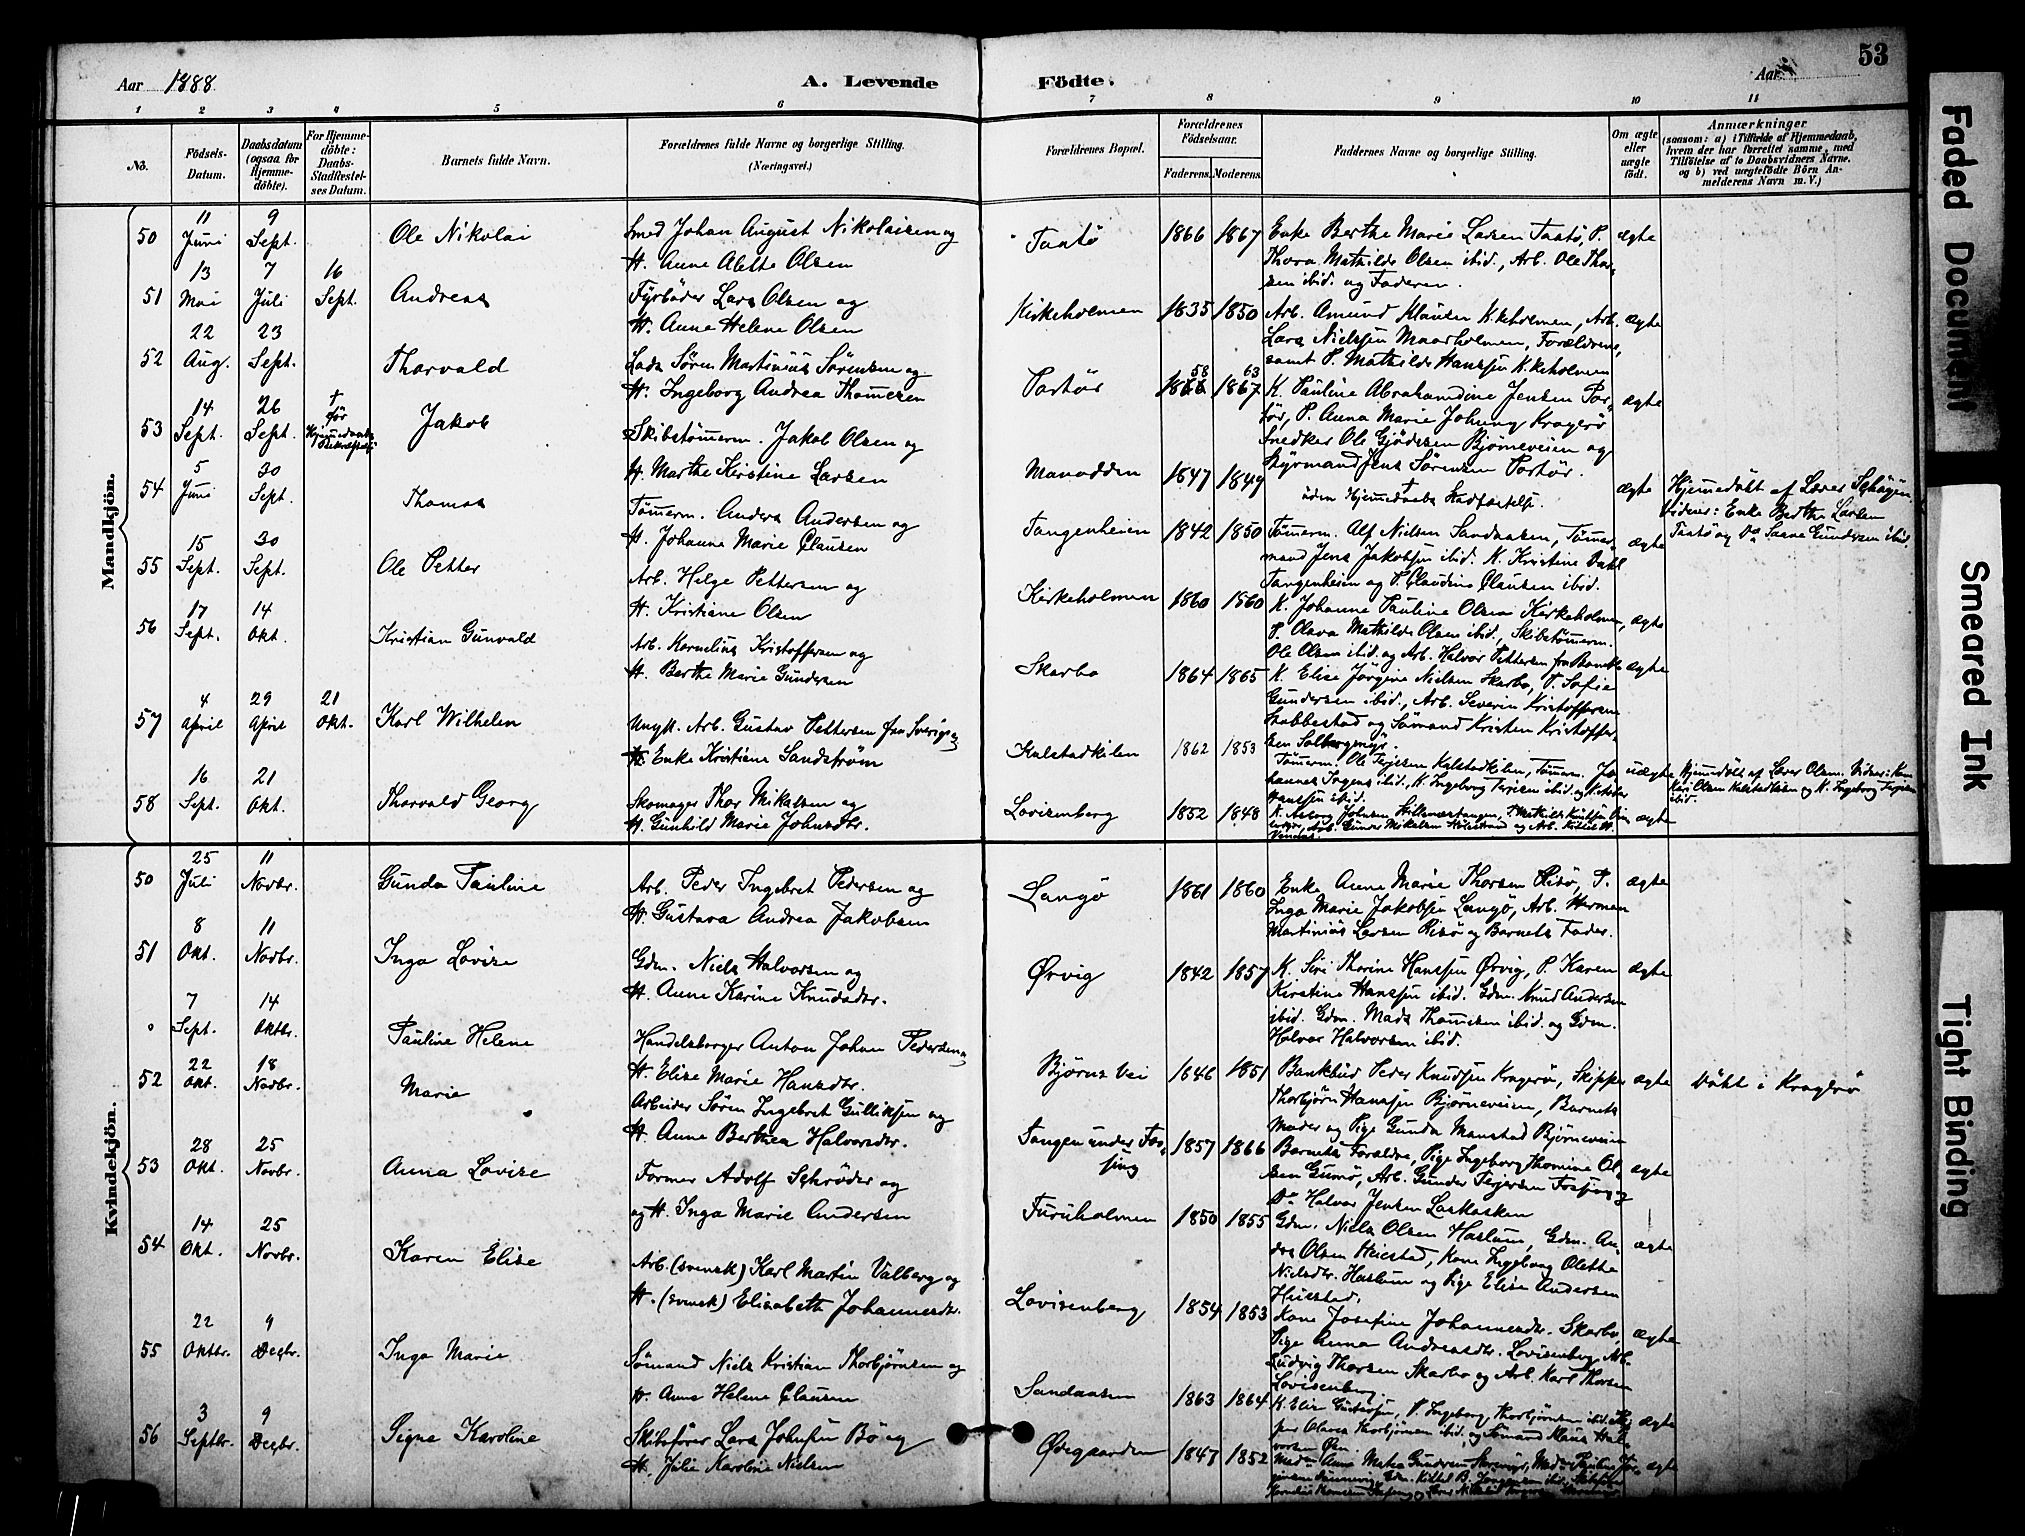 53
Aar 1888
A. Levende Födte.
Aar
1 2 3 4 5 6 7 8 9 10 11
No.
Födsels-Datum.
Daabsdatum (ogsaa for Hjemme-döbte).
For Hjemme-döbte: Daabs-Stadfæstel-ses Datum.
Barnets fulde Navn.
Forældrenes fulde Navne og borgerlige Stilling.
(Næringsvei.)
Forældrenes Bopæl.
Forældrenes Födselsaar.
Faderens. Moderens.
Faddernes Navne og borgerlige Stilling.
Om ægte eller uægte födt.
Anmærkninger
(saasom: a) i Tilfælde af Hjemmedaab,
hvem der har forrettet samme, med
Tilföielse af to Daabsvidners Navne.
og b) ved uægtefödte Börn An-
melderens Navn m. V.)
Mandkjön.
50 11 Juni 9 Sept. Ole Nikolai
Smed Johan August Nikolaisen og
H. Anne Alette Olsen
Taatø 1866 1867
Enke Berthe Marie Larsen Taatø, P.
Thora Mathilde Olsen ibid., Arb. Ole Thor-
sen ibid. og Faderen.
ægte
51 13 Mai 7 Juli 16 Sept. Andreas
Fyrbøder Lars Olsen og
H. Anne Helene Olsen
Kirkeholmen 1835 1850
Arb. Amund Klausen K.keholmen, Arb.
Lars Nielssen Maarholmen, Forældrene,
samt P. Mathilde Hanssen K.keholmen
ægte
52 22 Aug. 23 Sept. Thorvald
Lods Søren Martinius Sørensen og
H. Ingeborg Andrea Thomesen
Portør 58 63 1867
K. Pauline Abrahamdine Jensen Por-
tør, P. Anna Marie Kragerø
Snedker Ole Bjørneveien og
Styrmand Jens Sørensen Portør.
ægte
53 14 Sept. 26 Sept. † før Jakob
Skibstømerm. Jakob Olsen og
H. Marthe Kirstine Larsen
1847 1849
uden Hjemmedaabs Stadfæstelse.
ægte
Hjemmedøbt af Lærer
Vidner: Enke Berthe Larsen
Taatø og Do Gundersen ibid.
54 5 Juni 30 Sept. Thomas
Tømerm. Anders Andersen og
H. Johanne Marie Clausen
Tangenheien 1842 1850
Tømerm. Alf Nielsen Sandaasen, Tømer-
mand Jens Jakobsen ibid. K. Kristine Dahl
Tangenheien og P. Claudine Clausen ibid.
ægte
55 15 Sept. 30 Sept. Ole Petter
Arb. Helge Pettersen og
H. Kristiane Olsen
Kirkeholmen 1860 1860
K. Johanne Pauline Olsen Kirkeholmen,
P. Olava Mathilde Olsen ibid., Skibstømerm.
Ole Olsen ibid. og Arb. Halvor Pettersen fra Bamble
ægte
56 17 Sept. 14 Okt. Kristian Gunvald
Arb. Kornelius Kristoffersen og
H. Berthe Marie Gundersen
Skarbo 1864 1865
K. Elise Jørgine Nielsen Skarbo, P. Sofie
Gundersen ibid., Arb. Severin Kristoffersen
Stabbestad og Sømand Kristen Kristoffer-
sen
ægte
57 4 April 29 April 21 Okt. Karl Wilhelm
Ungk. Arb. Gustav Pettersen fra Sverige
Enke Kristiane Sandstrøm
Kalstadkilen 1862 1853
Tømerm. Ole Terjesen Kalstadkilen, Tømerm. Jo-
hannes ibid., K. Ingeborg Terjesen ibid. og
Hanssen ibid.
uægte
Hjemmedøbt af Lærer Olsen. Vidner:
Olsen Kalstadkilen og K. Ingeborg Terjesen
ibid.
58 16 Sept. 21 Okt. Thorvald Georg
Skomager Thor Mikalsen og
H. Gunhild Marie Johnsdtr.
Lovisenberg 1852 1848
K. Aasborg Johnsen
Arb. Gunder Mikalsen og Arb. Kittel
ægte
Kvindekjön.
50 25 Juli 11 Novbr. Gunda Pauline
Arb. Peder Ingebret Pedersen og
H. Gustava Andrea Jakobsen
Langø 1861 1860
Enke Anne Marie Thorsen Risø, P.
Inga Marie Jakobsen Langø, Arb. Herman
Martinius Larsen Risø og Barnets Fader.
ægte
51 8 Okt. 11 Novbr. Inga Lovise
Gdm. Niels Halvorsen og
H. Anne Karine Knudsdtr.
Ørvig 1842 1857
K. Siri Thorine Hanssen Ørvig, P. Karen
Kirstine Hanssen ibid. Gdm. Knud Andersen
ibid. Gdm. Mads Thomesen ibid. og Gdm.
Halvor Halvorsen ibid.
ægte
7 Sept. 14 Oktbr. Pauline Helene
Handelsborger Anton Johan Pedersen og
H. Elise Marie Hansdtr.
Bjørnsvei 1846 1851
Bankbud Peder Knudsen Kragerø, Skipper
Thorbjørn Hanssen Bjørneveien, Barnets
Moder og Pige Gunda Monstad Bjørneveien
ægte
Døbt i Kragerø
52 22 Okt. 18 Novbr. Marie
Arbeider Søren Ingebret Gulliksen og
H. Anne Berthea Halvorsdtr.
Tangen under Fos-
sing 1857 1866
Barnets Forældre, Pige Ingeborg Thomine Ol-
sen Gumø, Arb. Gunder Terjesen Fossing og
Do Halvor Jensen
ægte
53 28 Okt. 25 Novbr. Anna Lovise
Former Adolf Schrøder og
og H. Inga Marie Andersen
Furuholmen 1850 1855
Gdm. Niels Olsen Haslum, Gdm. An-
drs Olsen, Kone Ingeborg Olette
Nielsdtr. Haslum og Pige Elise Andersen
ægte
54 14 Okt. 25 Novbr. Karen Elise
Arb. (svensk) Karl Martin Valberg og
H. (svensk) Elisabeth Johannesdtr.
Lovisenberg 1854 1853
Kone Josefine Johannesdtr. Skarbo,
Pige Anna Andreasdtr. Lovisenberg, Arb.
Ludvig Thorsen Skarbo og Arb. Karl Thorsen
Lovisenberg.
ægte
55 22 Oktbr. 9 Decbr. Inga Marie
Sømand Niels Kristian Thorbjørnsen og
H. Anne Helene Clausen
Sandaasen 1863 1864
K. Elise Gustavsen, P. Ingeborg Thorbjørnsen ibid.
Olava Thorbjørnsen ibid. og Sømand Klaus Hal-
vorsen
ægte
56 3 Septbr. 9 Decbr. Signe Karoline
Skibsfører Lars Johnsen Bø og
H. Julie Karoline Nielsen
Ødegaarden 1847 1852
ægte
Faded Document
Smeared Ink
Tight Binding